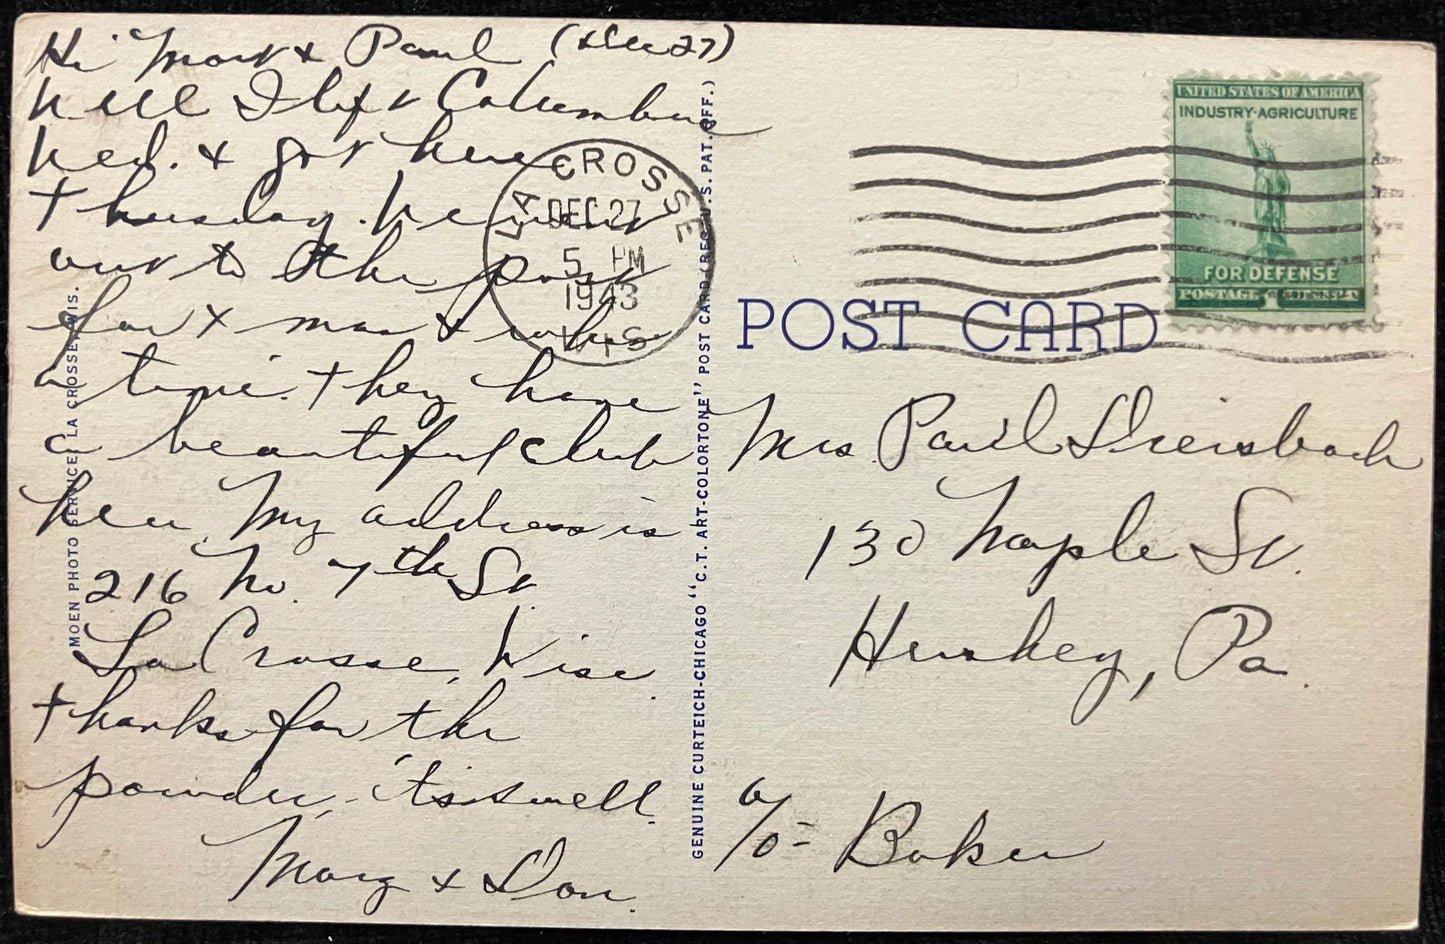 Hi Mart & Paul (Dec 27)
Well I left Columbus
Wed. & got here
Thursday. We went
out to the post
for x mas & what
a time. They have
a beautiful club
here. My address is
216 No. 7th St.
La Crosse, Wisc.
Thanks for the
powder, 'tis swell.
Mary & Don.
MOEN PHOTO SERVICE, LA CROSSE, WIS.
GENUINE CURTEICH-CHICAGO "C.T. ART-COLORTONE" POST CARD (REG. U.S. PAT. OFF.)
LA CROSSE
DEC 27
5 PM
1943
WIS
UNITED STATES OF AMERICA
INDUSTRY·AGRICULTURE
FOR DEFENSE
POSTAGE
POST CARD
Mrs. Paul Dreisbach
130 Maple St.
Hershey, Pa.
c/o - Baker